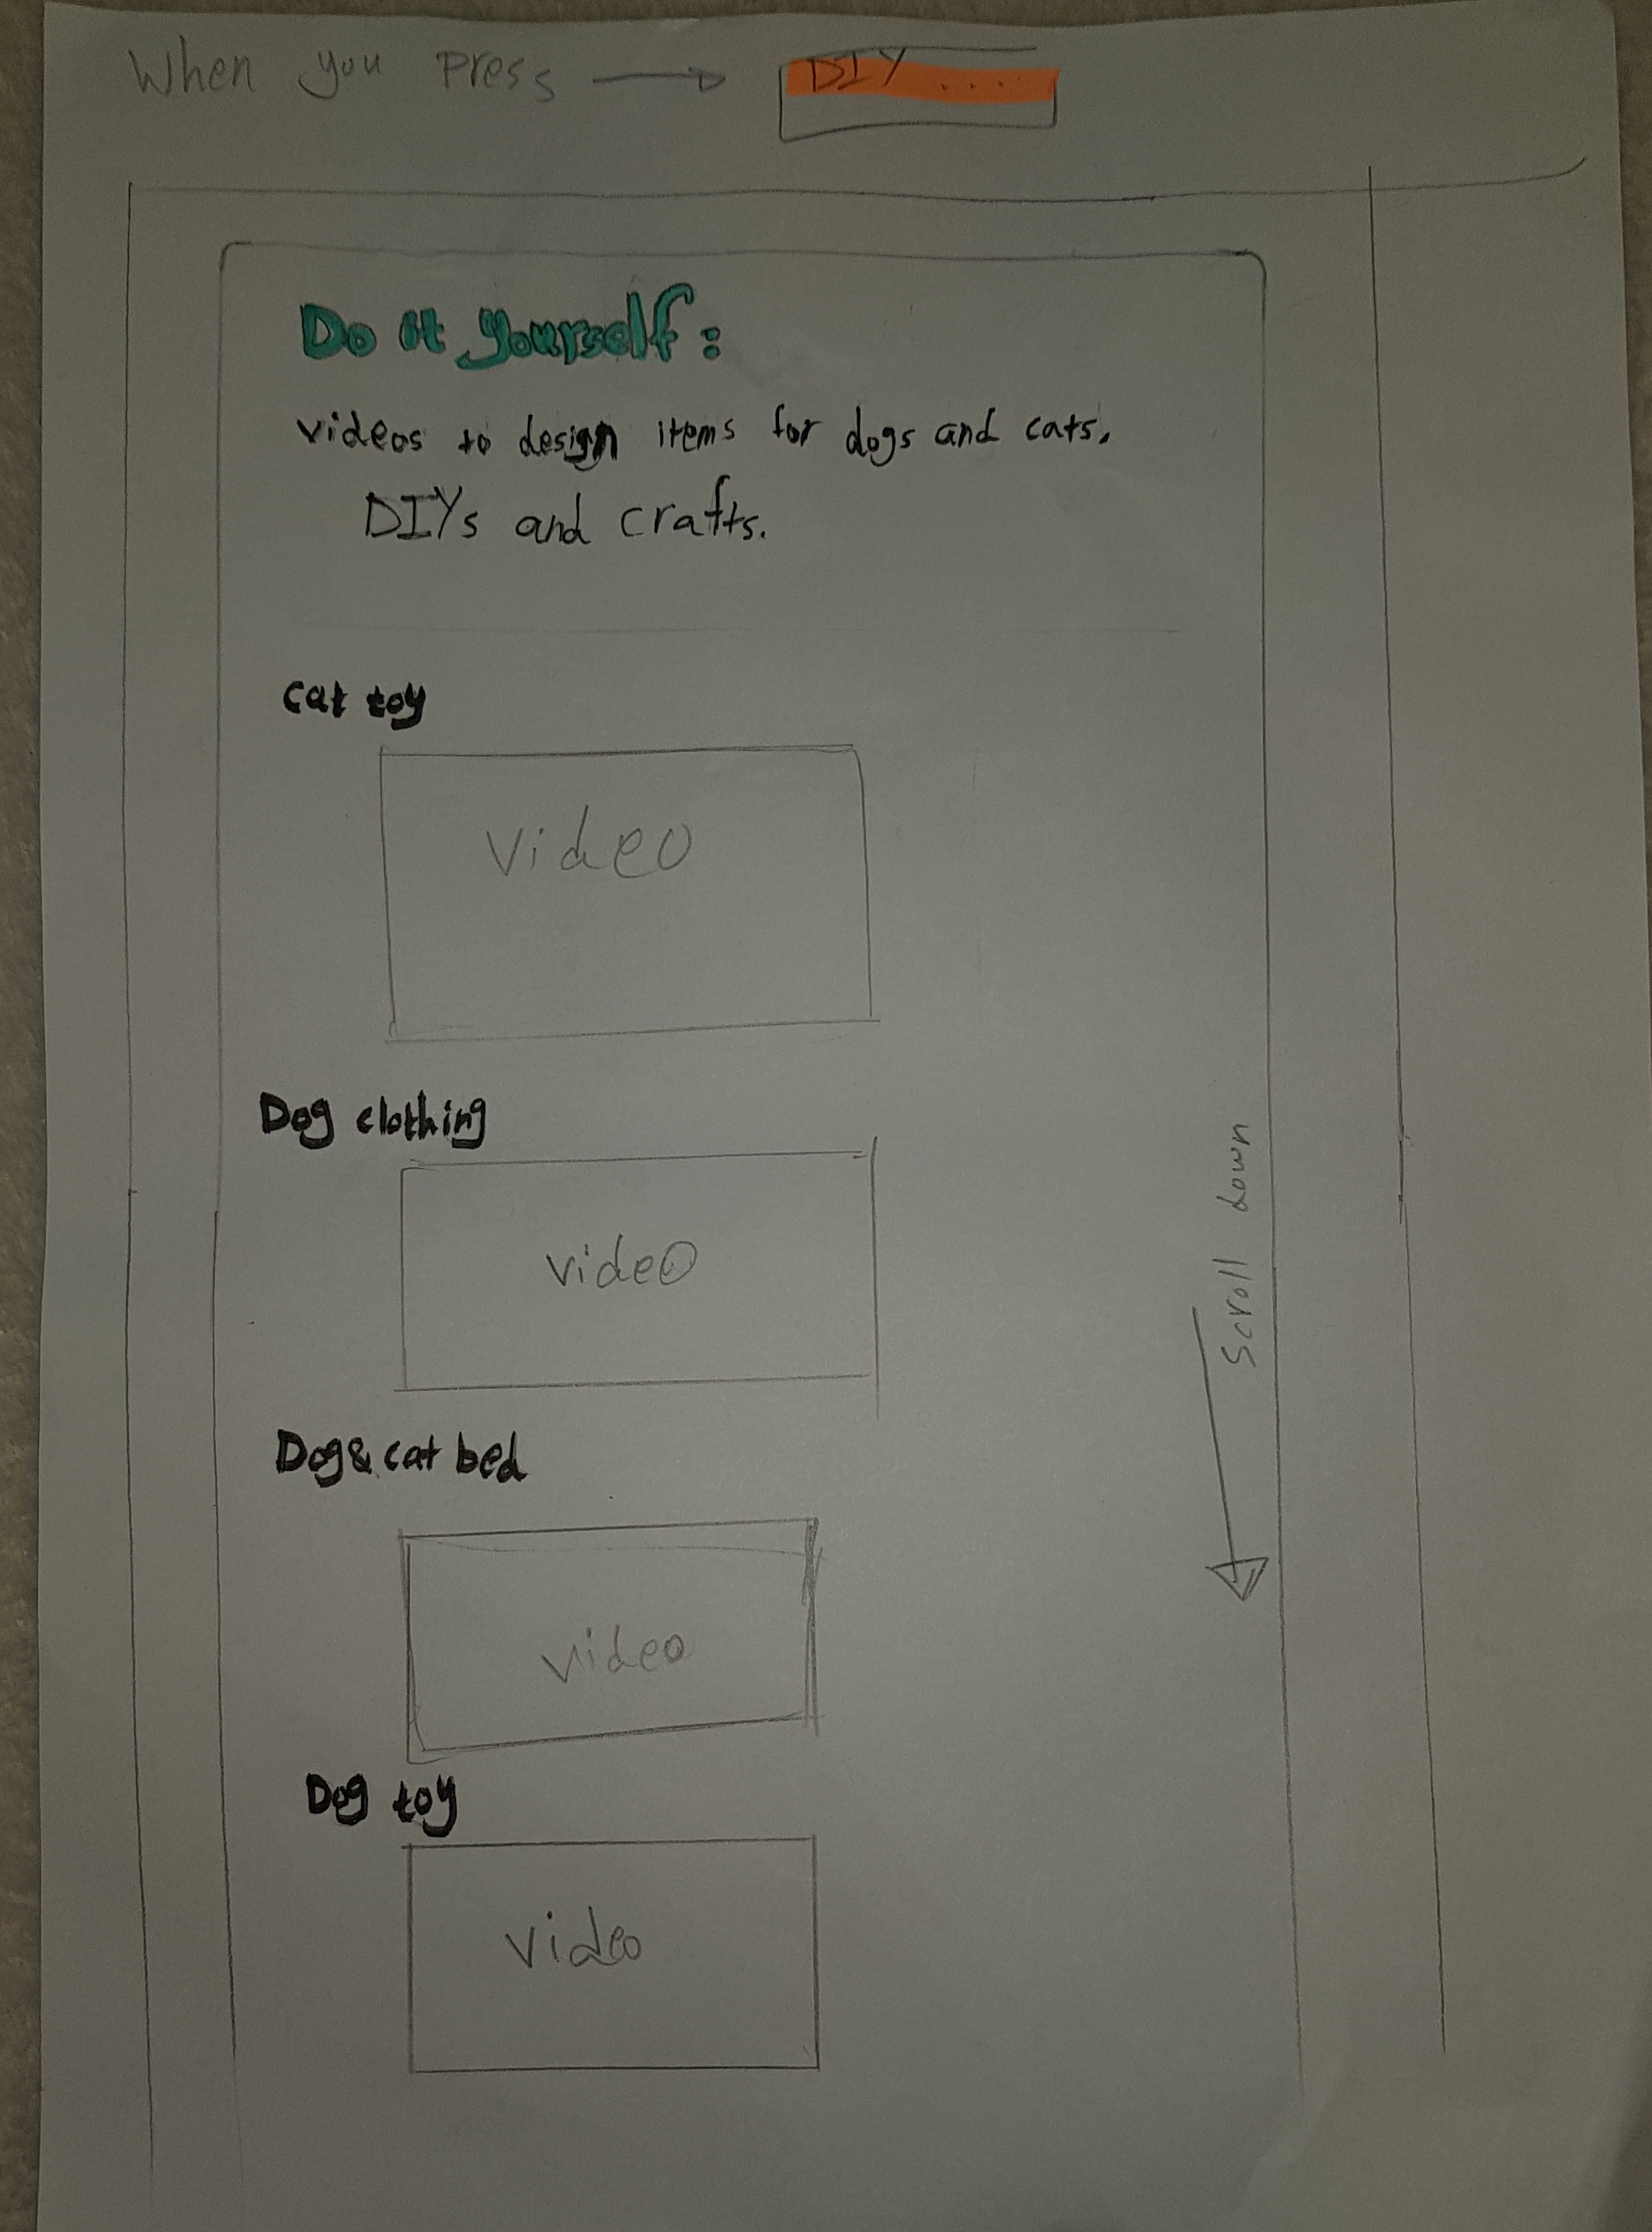 When you press
DIY ....
Do it yourself:
videos to design items for dogs and cats.
DIYs and crafts.
cat toy
video
Dog clothing
video
Scroll down
Dog & cat bed
video
Dog toy
video